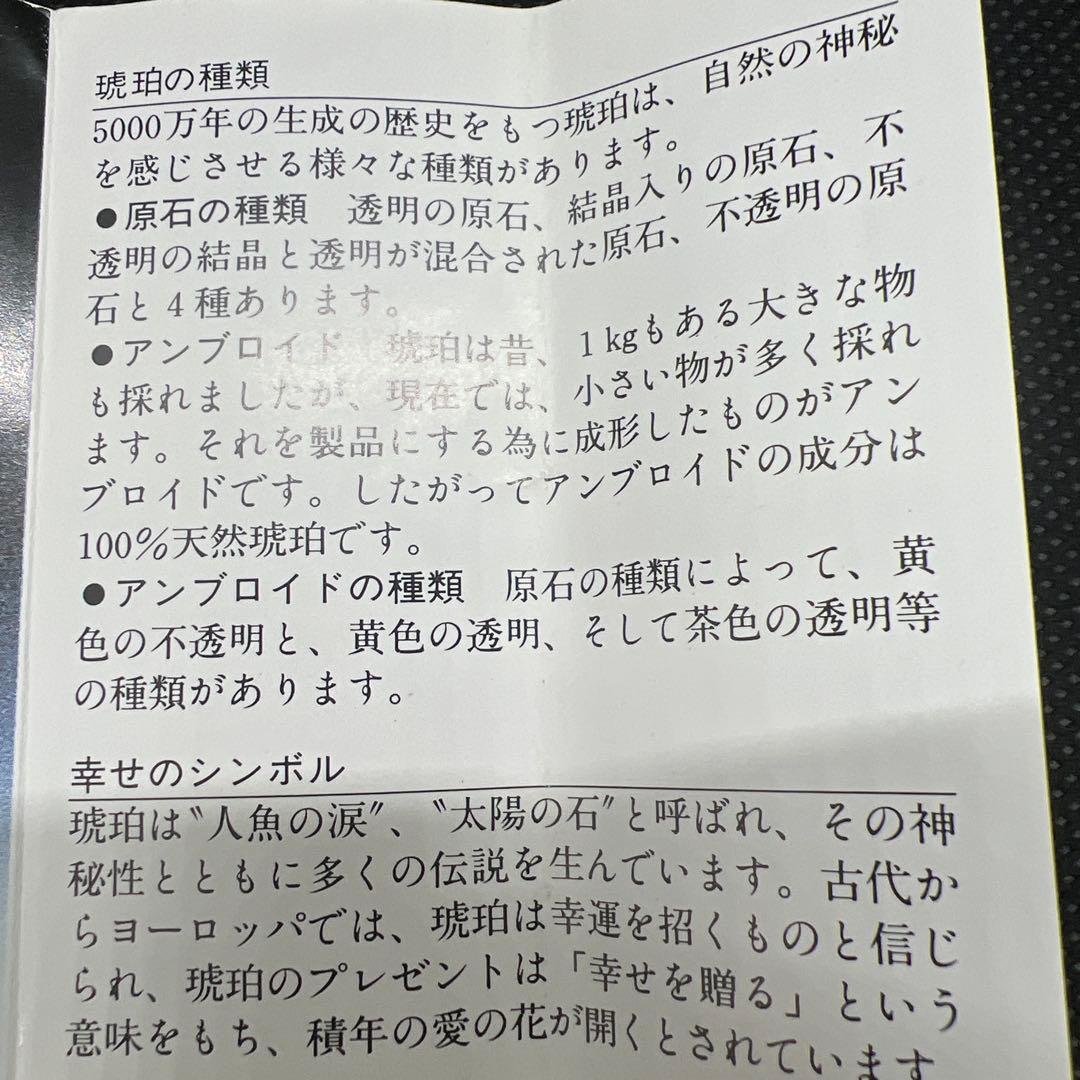 琥珀の種類
5000万年の生成の歴史をもつ琥珀は、自然の神秘
を感じさせる様々な種類があります。
●原石の種類　透明の原石、結晶入りの原石、不
透明の結晶と透明が混合された原石、不透明の原
石と4種あります。
●アンブロイド　琥珀は昔、1kgもある大きな物
も採れましたが、現在では、小さい物が多く採れ
ます。それを製品にする為に成形したものがアン
ブロイドです。したがってアンブロイドの成分は
100%天然琥珀です。
●アンブロイドの種類　原石の種類によって、黄
色の不透明と、黄色の透明、そして茶色の透明等
の種類があります。
幸せのシンボル
琥珀は〝人魚の涙〞、〝太陽の石〞と呼ばれ、その神
秘性とともに多くの伝説を生んでいます。古代か
らヨーロッパでは、琥珀は幸運を招くものと信じ
られ、琥珀のプレゼントは「幸せを贈る」という
意味をもち、積年の愛の花が開くとされています